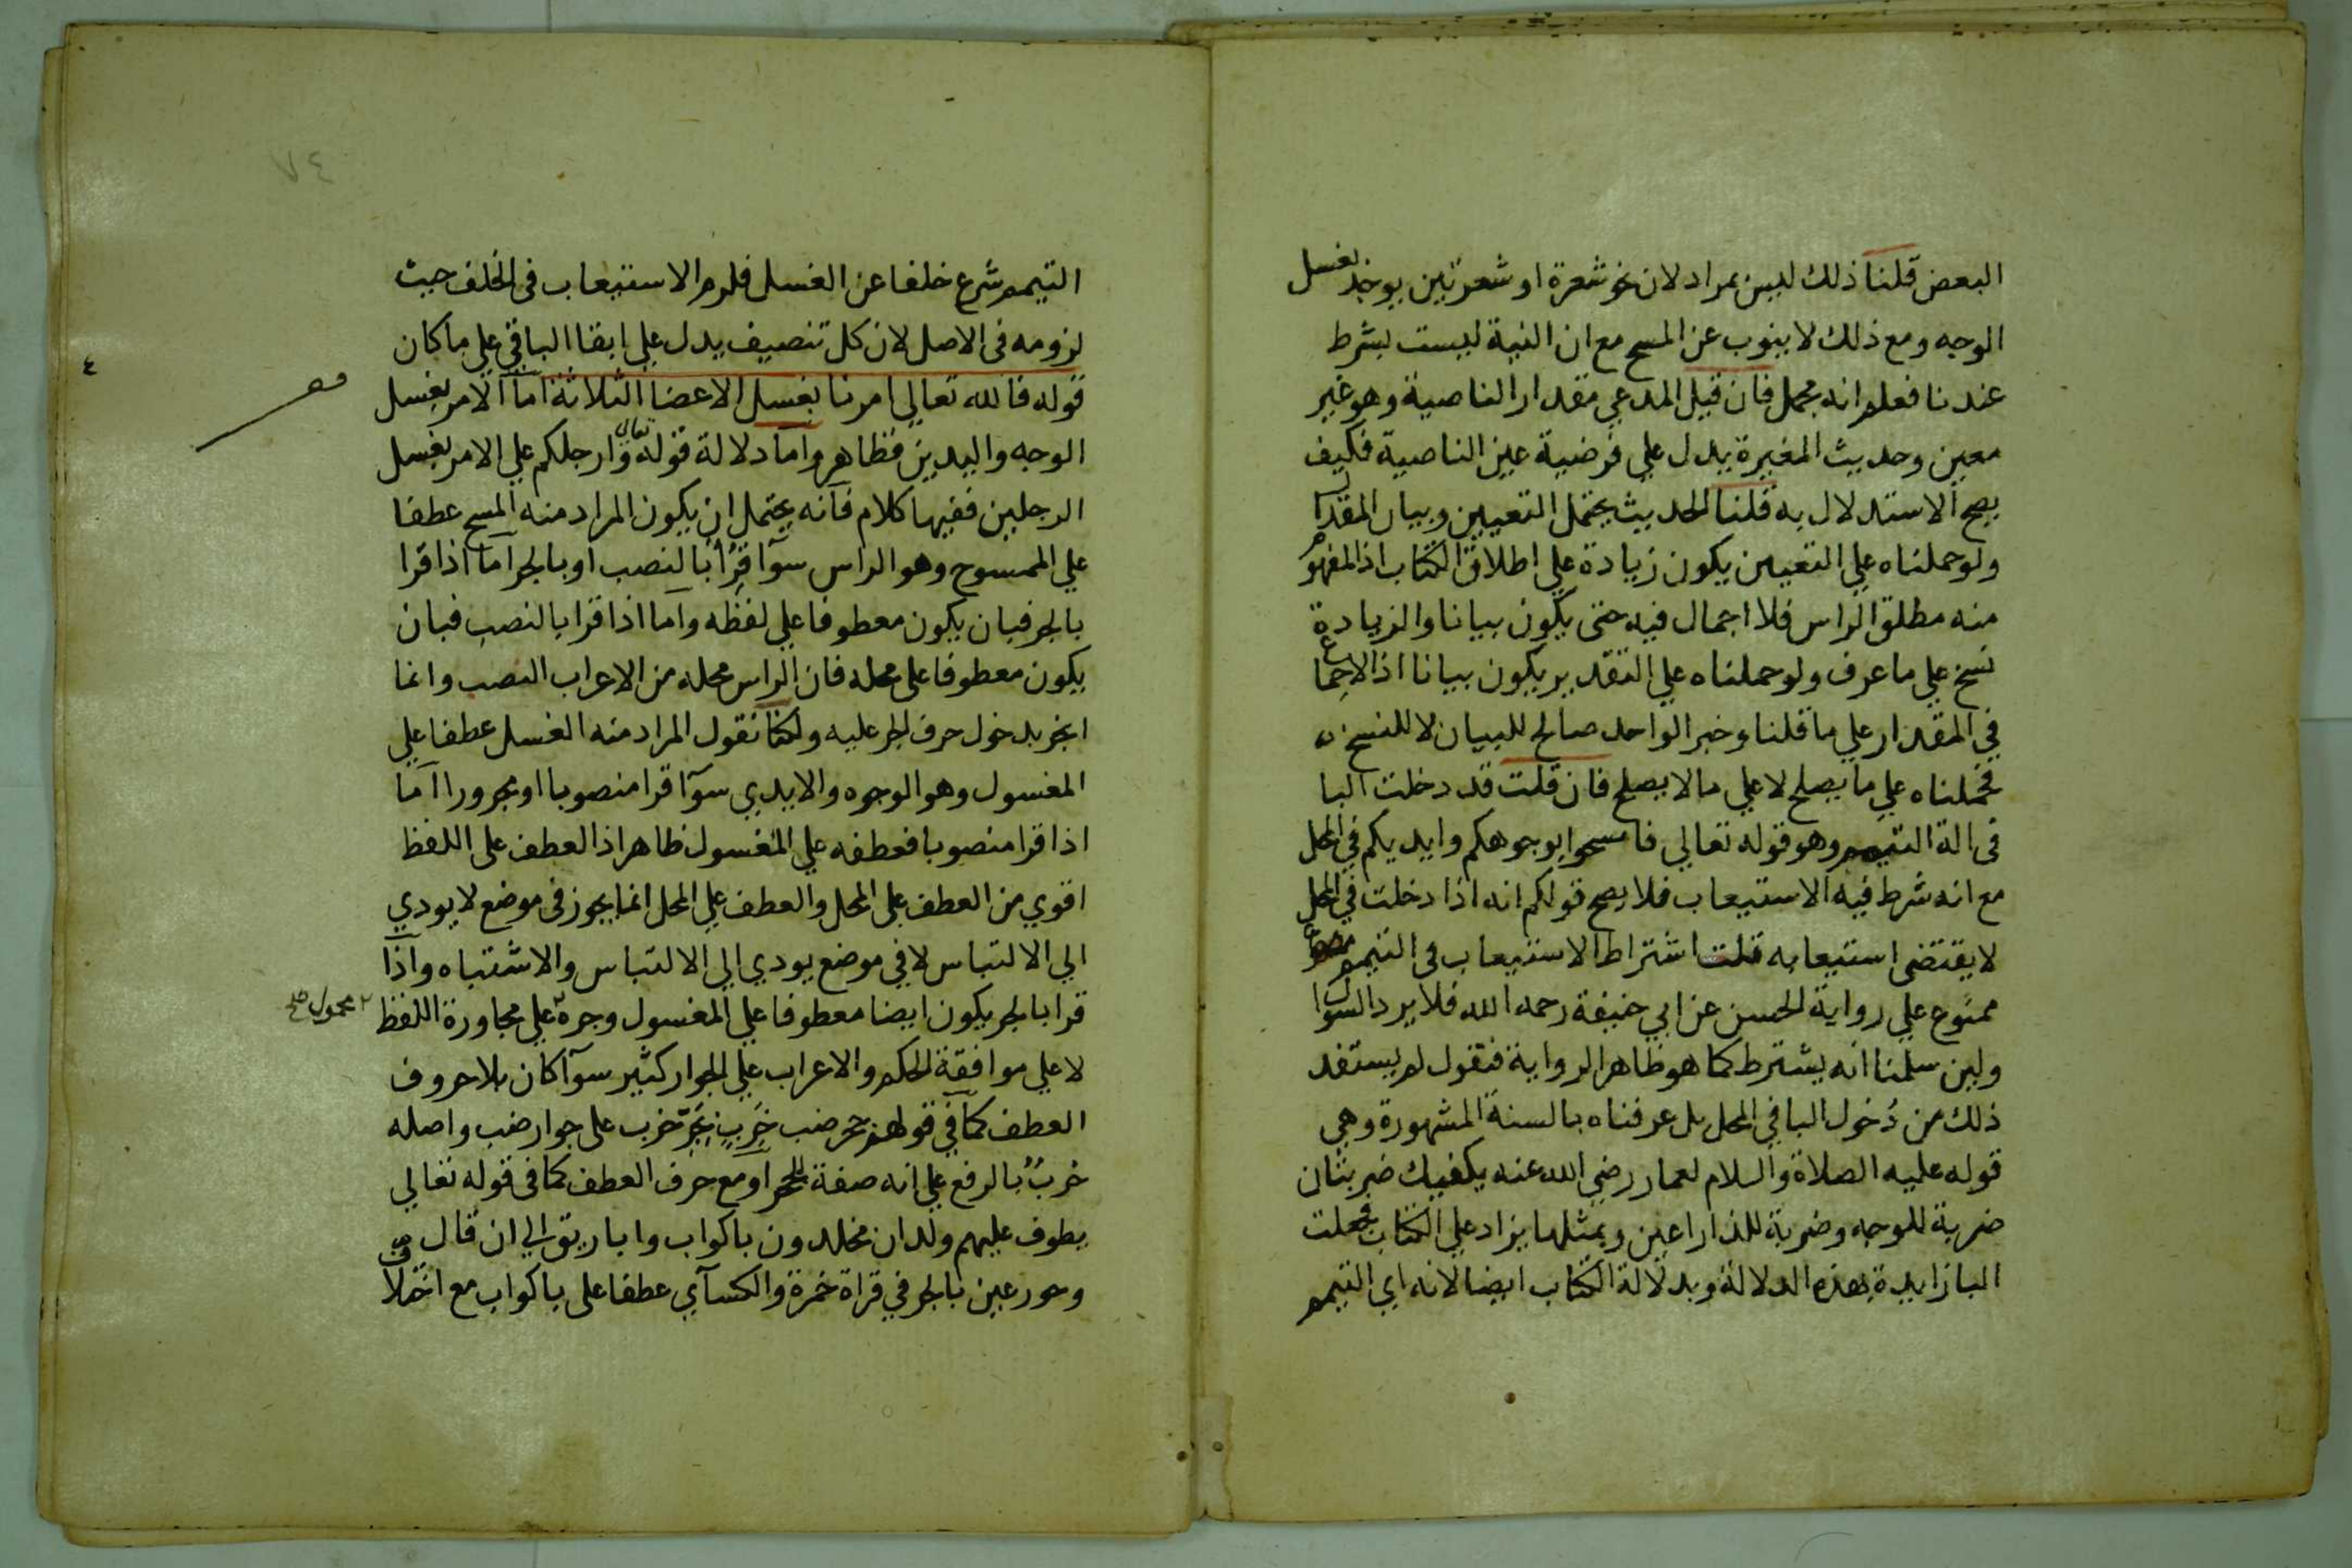 البعض قلنا ذلك ليس بمراد لان نحو شعرة او شعرتين يوجد بغسل
الوجه ومع ذلك لا ينوب عن المسح مع ان النية ليست بشرط
عندنا فعلم انه مجمل فان قيل المدعي مقدار الناصية وهو غير
معين وحديث المغيرة يدل علي فرضية عين الناصية فكيف
يصح الاستدلال به قلنا الحديث يحتمل التعيين وبيان المقدار
ولو حملناه علي التعيين يكون زيادة علي اطلاق الكتاب اذ المفهوم
منه مطلق الراس فلا اجمال فيه حتى يكون بيانا والزيادة
نسخ علي ما عرف ولو حملناه علي التقدير يكون بيانا اذ الاجماع
في المقدار علي ما قلنا وخبر الواحد صالح للبيان لا للنسخ
فحملناه علي ما يصلح لا علي ما لا يصلح فان قلت قد دخلت البا
في الة التيمم وهو قوله تعالي فامسحوا بوجوهكم وايديكم في المحل
مع انه شرط فيه الاستيعاب فلا يصح قولكم انه اذا دخلت في المحل
لا يقتضى استيعابه قلت اشتراط الاستيعاب في التيمم
ممنوع علي رواية الحسن عن ابي حنيفة رحمه الله فلا يرد السوال
ولين سلمنا انه يشترط كما هو ظاهر الرواية فنقول لم يستفد
ذلك من دخول البا في المحل بل عرفناه بالسنة المشهورة وهي
قوله عليه الصلاة والسلام لعمار رضي الله عنه يكفيك ضربتان
ضربة للوجه وضربة للذراعين وبمثلها يزاد علي الكتاب فجعلت
البا زايدة بهذه الدلالة وبدلالة الكتاب ايضا لانه اي التيمم
٧٤
التيمم شرع خلفا عن الغسل فلزم الاستيعاب في الخلف حيث
لزومه في الاصل لان كل تنصيف يدل علي ابقا الباقي علي ما كان
قوله فالله تعالي امرنا بغسل الاعضا الثلاثة اما الامر بغسل
الوجه واليدين فظاهر واما دلالة قوله تعالى وارجلكم علي الامر بغسل
الرجلين ففيها كلام فانه يحتمل ان يكون المراد منه المسح عطفا
علي الممسوح وهو الراس سوآ قرأ بالنصب او بالجر اما اذا قرا
بالجر فبان يكون معطوفا علي لفظه واما اذا قرا بالنصب فبان
يكون معطوفا على محله فان الراس محله من الاعراب النصب وانما
انجر بدخول حرف الجر عليه ولكنا نقول المراد منه الغسل عطفا علي
المغسول وهو الوجوه والايدي سوآ قرا منصوبا او مجرورا اما
اذا قرا منصوبا فعطفه علي المغسول ظاهر اذ العطف على اللفظ
اقوي من العطف على المحل والعطف علي المحل انما يجوز في موضع لا يودي
الي الالتباس لا في موضع يودي الي الالتباس والاشتباه واذا
قرا بالجر يكون ايضا معطوفا علي المغسول وجره ٢ علي مجاورة اللفظ
٢ محمول صح
لا علي موافقة الحكم والاعراب علي الجوار كثير سوآ كان بلا حروف
العطف كما في قولهم جحر ضب خرب بجر خرب على جوار ضب واصله
خرب بالرفع علي انه صفة للجحر او مع حرف العطف كما في قوله تعالي
يطوف عليهم ولدان مخلدون باكواب واباريق الي ان قال
وحور عين بالجر في قراة حمزة والكسآي عطفا على باكواب مع